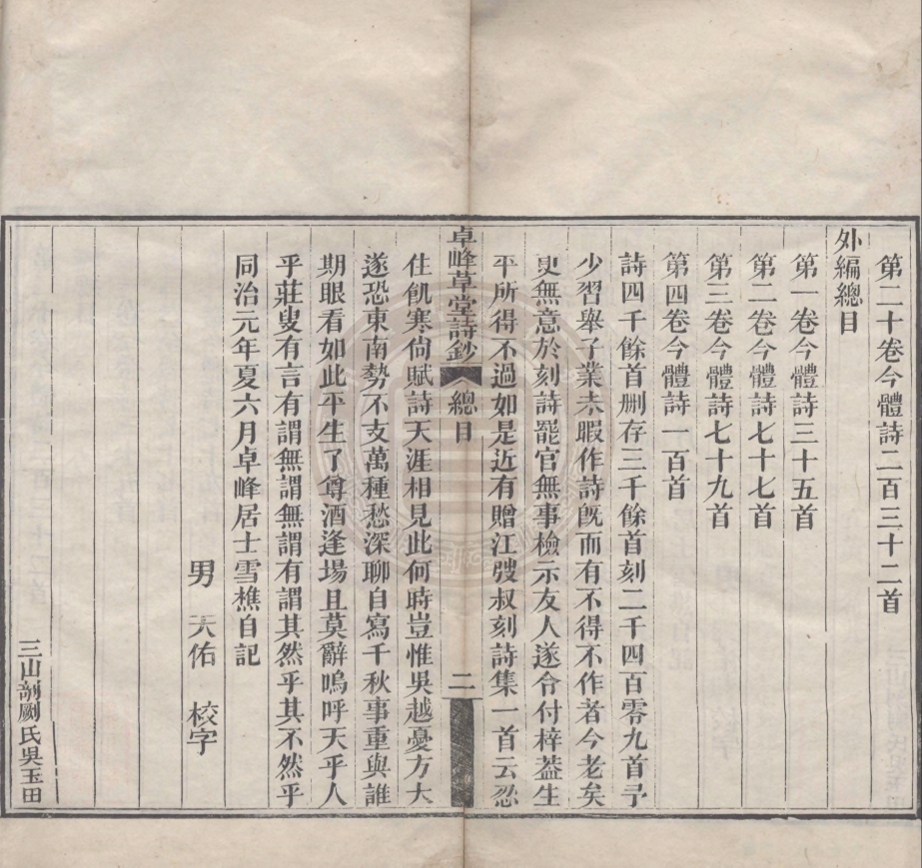 第二十卷今體詩二百三十二首
外編總目
第一卷今體詩三十五首
第二卷今體詩七十七首
第三卷今體詩七十九首
第四卷今體詩一百首
詩四千餘首刪存三千餘首刻二千四百零九首予
少習舉子業未暇作詩旣而有不得不作者今老矣
更無意於刻詩罷官無事檢示友人遂令付梓葢生
平所得不過如是近有贈江弢叔刻詩集一首云忍
住飢寒尙賦詩天涯相見此何時豈惟吳越憂方大
遂恐東南勢不支萬種愁深聊自寫千秋事重與誰
期眼看如此平生了尊酒逢場且莫辭嗚呼天乎人
乎莊叟有言有謂無謂無謂有謂其然乎其不然乎
同治元年夏六月卓峰居士雪樵自記
男 天佑 校字
三山剞劂氏吳玉田
卓峰草堂詩鈔 總目 二